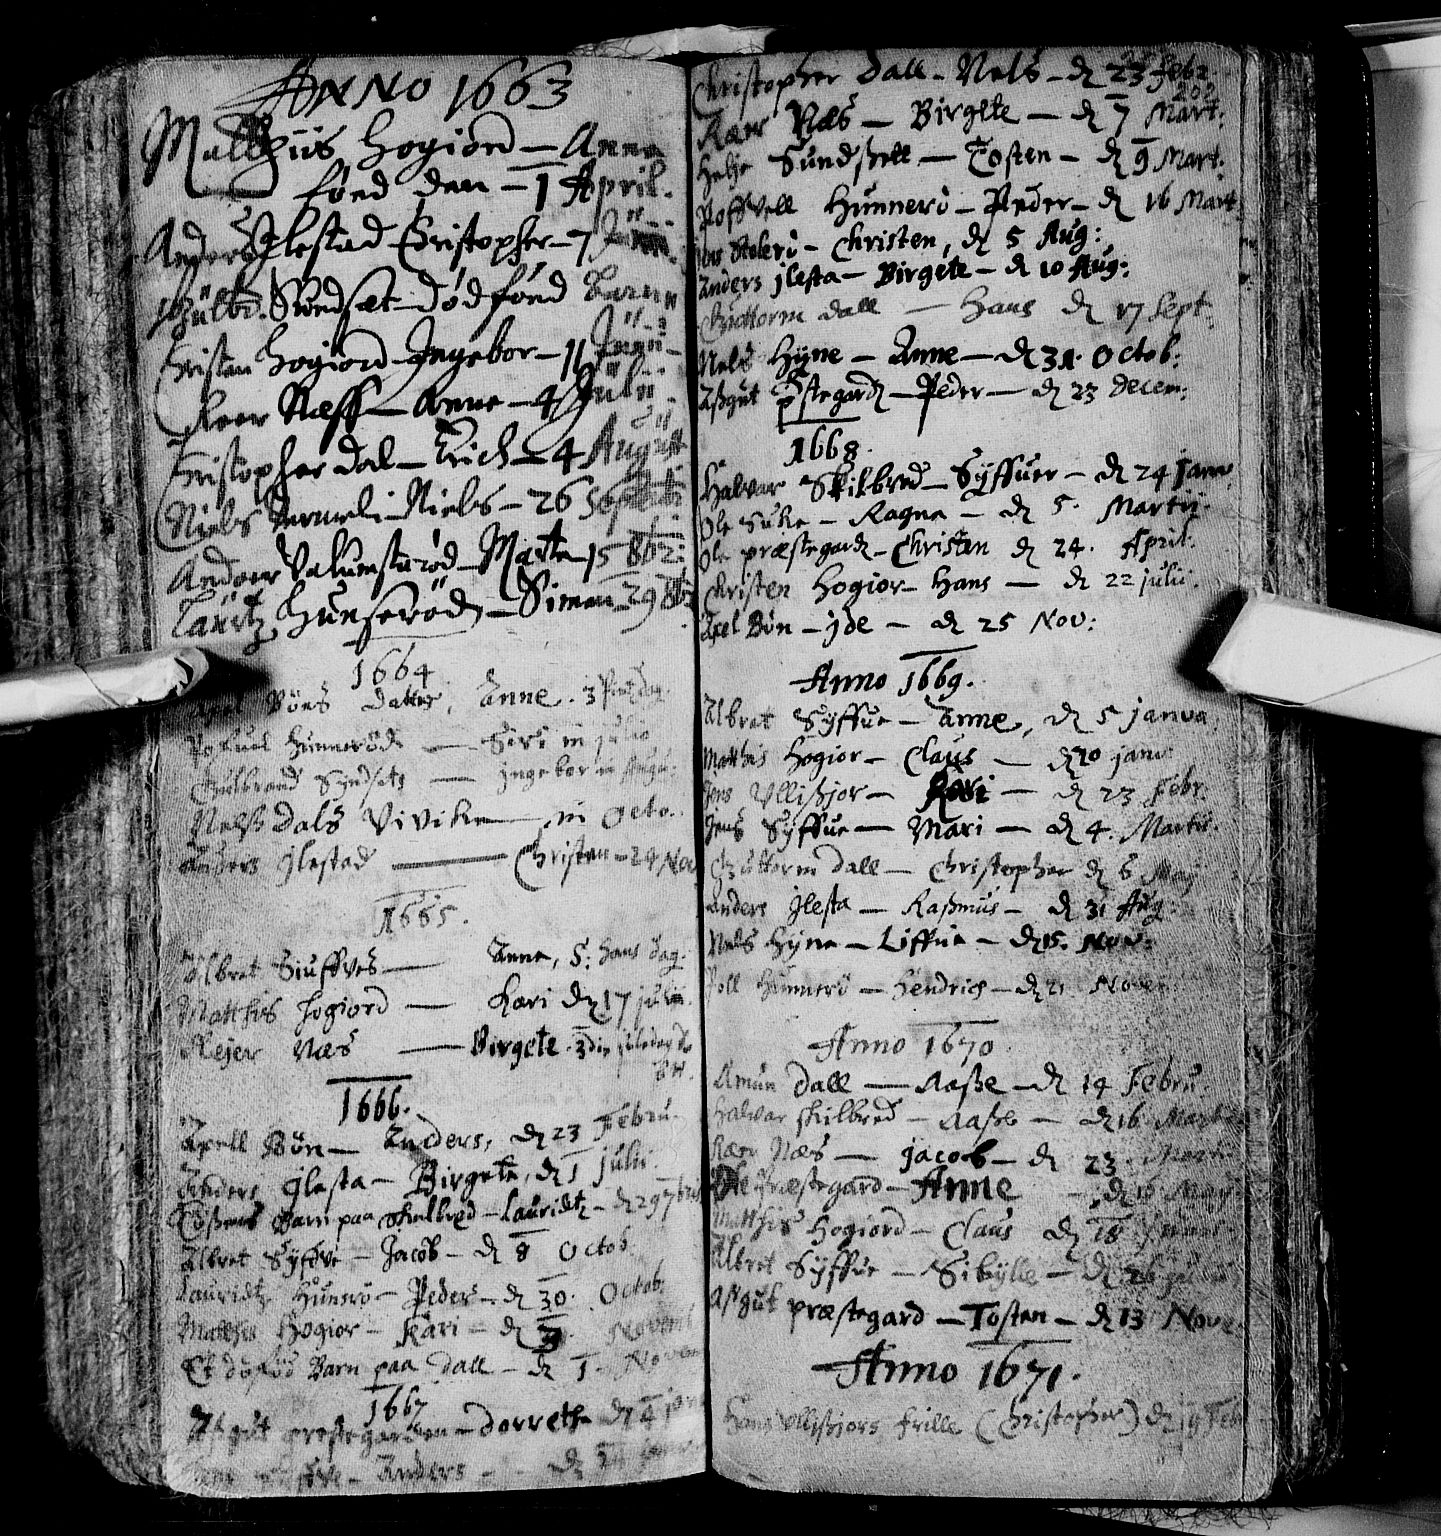 Anno 1663
Matthiis Hogiord – Anna
fönd den – 1 April.
Anders Ilestad – Christopher – 7
Gulbr. Sundsæt – dödfönd barn
Christen hogiord – Ingebor – 11 Junii
Reer Næss – Anne – 4 Julii
Christopher dal – Erich – 4 August
Niels Jermeli – Niels – 26 Septemb
Andoer – Marte – 15 8b2:
Laurtz Hunserödt – Simen – 29 8b
1664
Axel Böns datter, Anne. 3
Pofuel Hunnerödt — Siri in julio
Gulbrand Syndsets — Ingebor in Augu:
Nelss dals Vivike — in Octo.
Anders Jlestad — Christen – 24 Nov
1665.
Albret Siuffves — Anne, S: hans dag.
Matthis Hogiord — Kari dn 17 julii.
Rejer Næs — Birgete. 3die juledag
1666.
Axell Bön — Anders, dn 23 Febru.
Anders Jlesta – Birgete, dn 1 julii.
Barn paa Skilbred – Lauridtz – dn 29 7bris
Albret Syfve – Jacob – dn 8 Octob.
Lauridtz Hunsrö – Peder – dn 30. Octob:
Matthis Hogior – Kari – dn Novemb
Et döfod Barn paa dall – dn 1. Novem
1667
Asgut prestegarden – dorrethe dn 4 jan
– Anders – dn
Christopher dall – Nels – dn 23 Febr.
200
Rær Næs — Birgete — dn 7 Mart:
Helje Sundsett — Tosten – dn 9 Mart:
Poffvell Hunnerö – Peder – dn 16 Mart
Stolerö – Christen, dn 5 Aug:
Anders jlesta – Birgete – dn 10 Aug:
Guttorm dall — Hans dn 17 Sept:
Nels Hyne — Anne — dn 31. Octob.
Assgut pstegardt – Peder — dn 23 decem:
1668.
Halvar Skilbred – Syffuer – dn 24 Janv.
Ole Suke – Ragne – dn 5. Martij.
Ole præstegardt – Christen dn 24. April.
Christen Hogior – Hans — dn 22 julii.
Axel Bön – jde – dn 25 Nov:
Anno 1669.
Albret Syffue – Anne, dn 5 janva.
Matthis Hogior – Claus — dn 10 janv
Jens Ullissjor – Kari — dn 23 Febr.
Jens Syffue — Mari — dn 4. Martii.
Guttorm dall — Christopher dn 6 Maj
Anders Jlesta — Rassmus – dn 31 Aug.
Nels Hyne – Liffue – dn 15. Nov:
Poll Hunnerö – Hendrich – dn 21 Novem
Anno 1670
Amun dall — Aasse – dn 14 Febru.
Halvar skilbred – Aasse – dn 16 Martii
Rær Næs — jacob – dn 23 Martii
Ole Præstegard – Anne – dn 16 May
Matthis Hogiord – Claus dn 18
Albret Syffue – Sibylle – dn 26
Asgut præstegard – Tosten – dn 13 Nove.
Anno 1671.
Hans Ullissjors frille (Christopher) dn 19 Feb